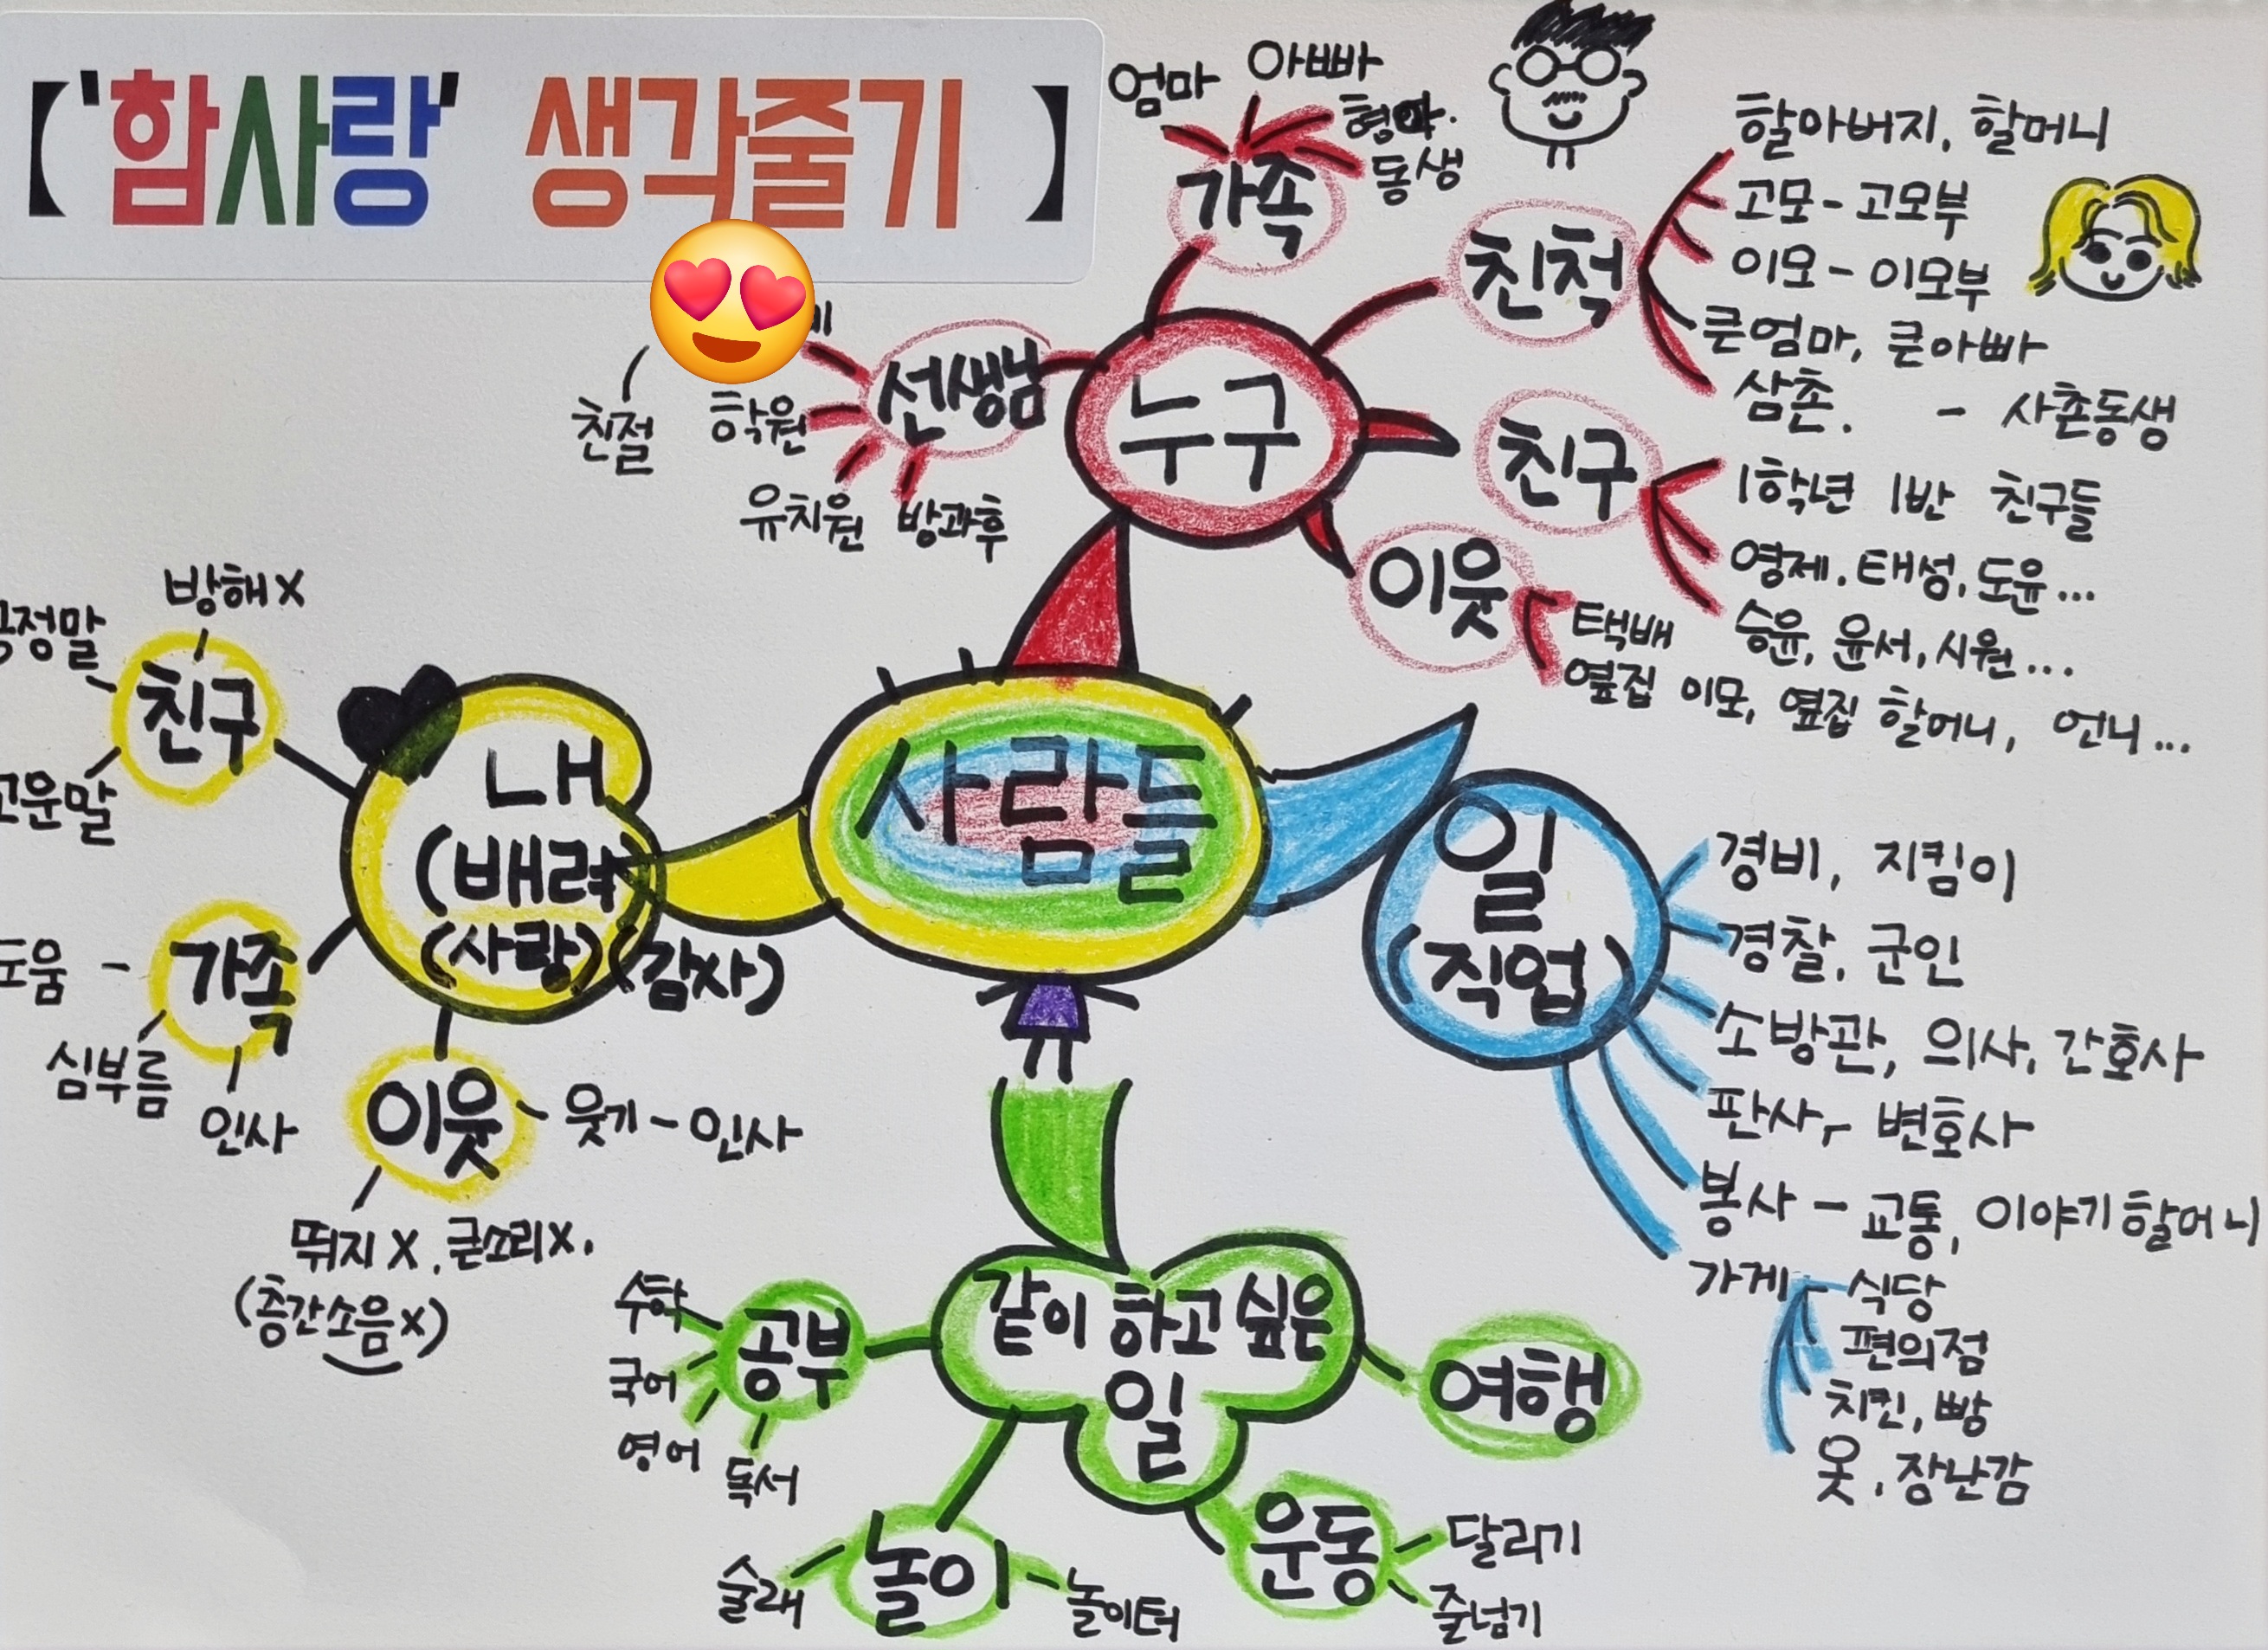 【'함사랑' 생각줄기】
엄마
아빠
형아.
동생
가족
할아버지, 할머니
고모 - 고모부
이모 - 이모부
큰엄마, 큰아빠
삼촌. - 사촌동생
친척
선생님
친절
학원
유치원
방과후
누구
친구
1학년 1반 친구들
영제. 태성, 도윤...
승윤, 윤서, 시원...
이웃
택배
옆집 이모, 옆집 할머니, 언니...
사람들
방해X
친구
내
(배려)
(사랑) (감사)
가족
심부름
인사
이웃
웃기 - 인사
뛰지X, 큰소리X.
(층간소음X)
일
(직업)
경비, 지킴이
경찰, 군인
소방관, 의사, 간호사
판사, 변호사
봉사 - 교통, 이야기 할머니
가게
식당
편의점
치킨, 빵
옷, 장난감
같이 하고 싶은
일
공부
수학
국어
영어
독서
여행
놀이
술래
놀이터
운동
달리기
줄넘기